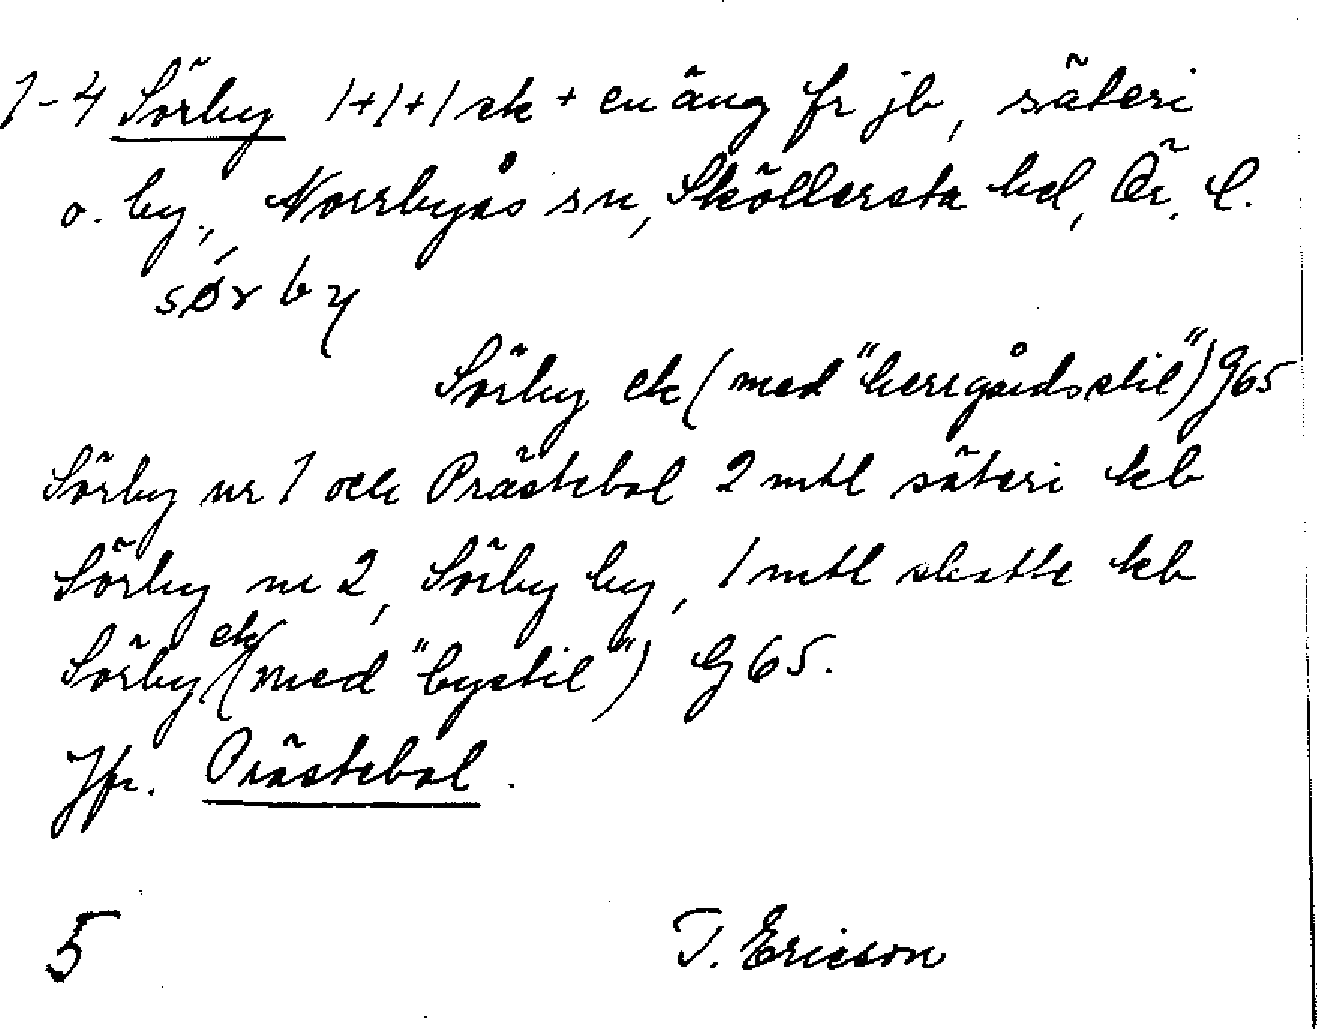 1-4 Sörby 1+1+1 sk + en äng fr jb, säteri
o. by, Norrbyås sn, Sköllersta hd, Ör. l.
sørby
Sörby ek (med "herrgårdsstil") G65
Sörby nr 1 och Prästebol 2 mtl säteri kb
Sörby nr 2, Sörby by, 1 mtl skatte kb
Sörby ek (med "bystil") G65.
Jfr. Prästebol.
5 T. Ericson